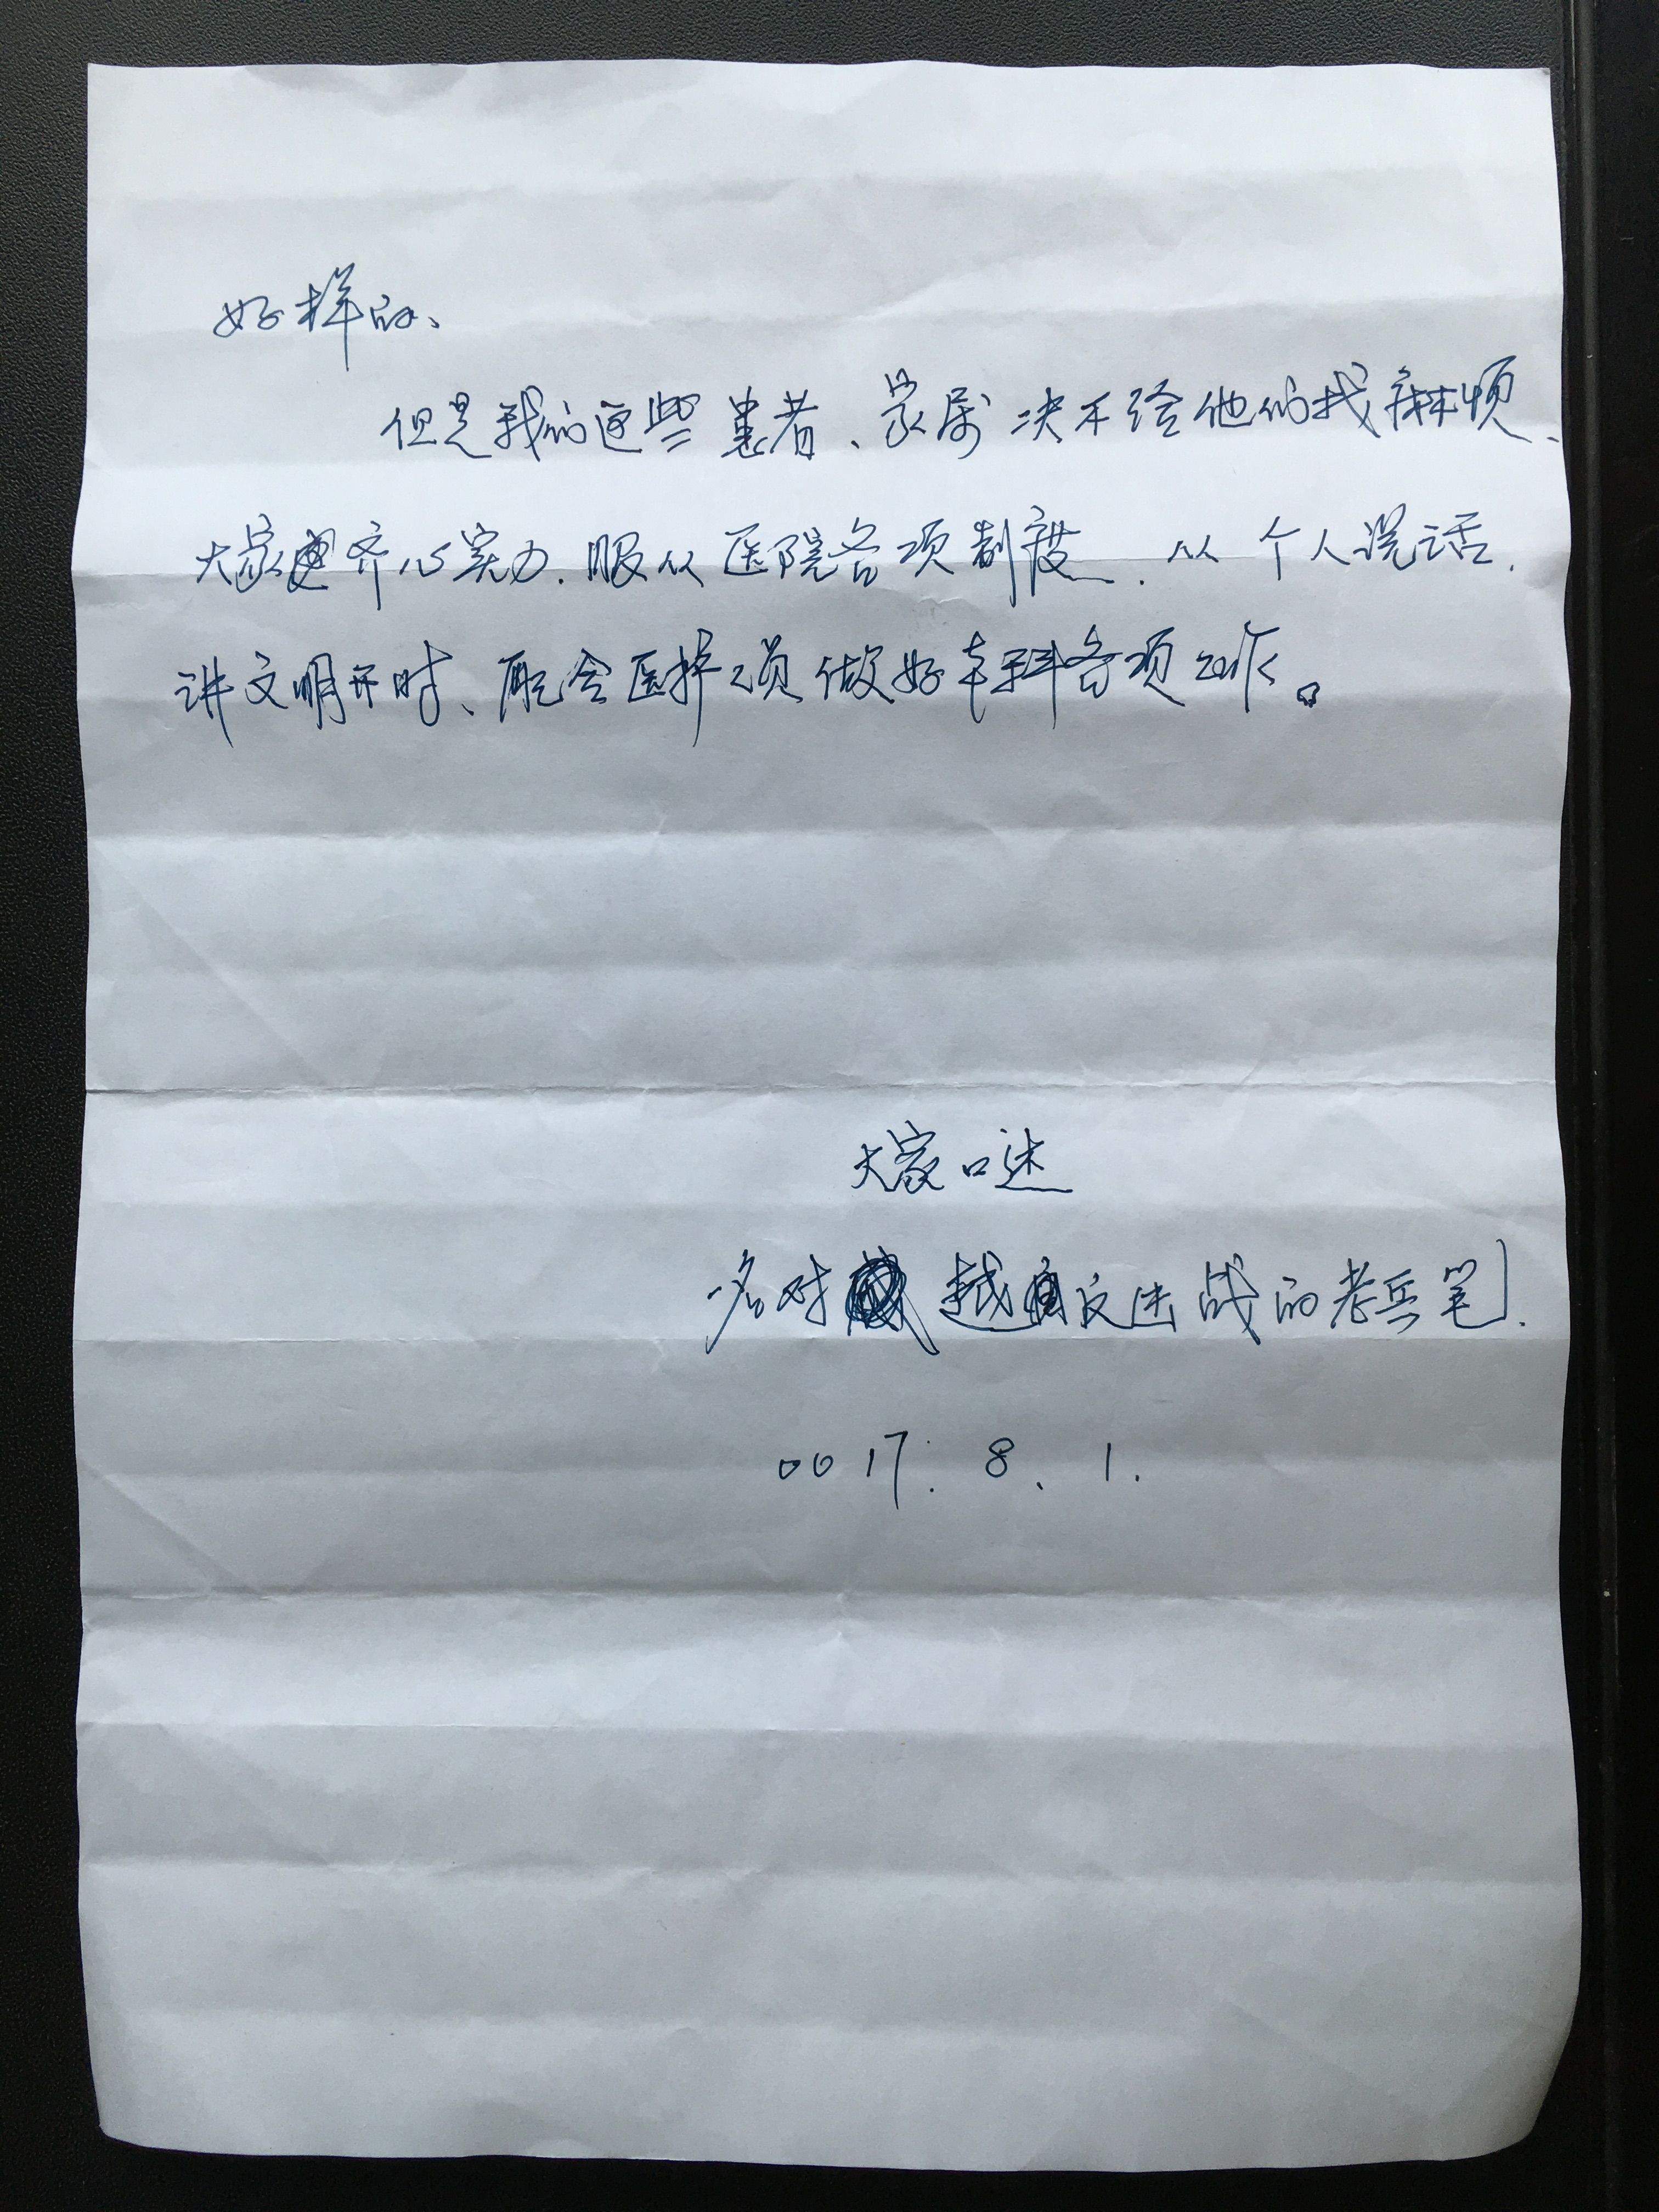 好样的、
但是我们这些患者、家属决不给他们找麻烦、
大家齐心实力.服从医院各项制度.从个人说话.
讲文明开时、配合医护人员做好本科各项工作。
大家口述
一名对越自反击战的老兵笔.
0017.8、1.